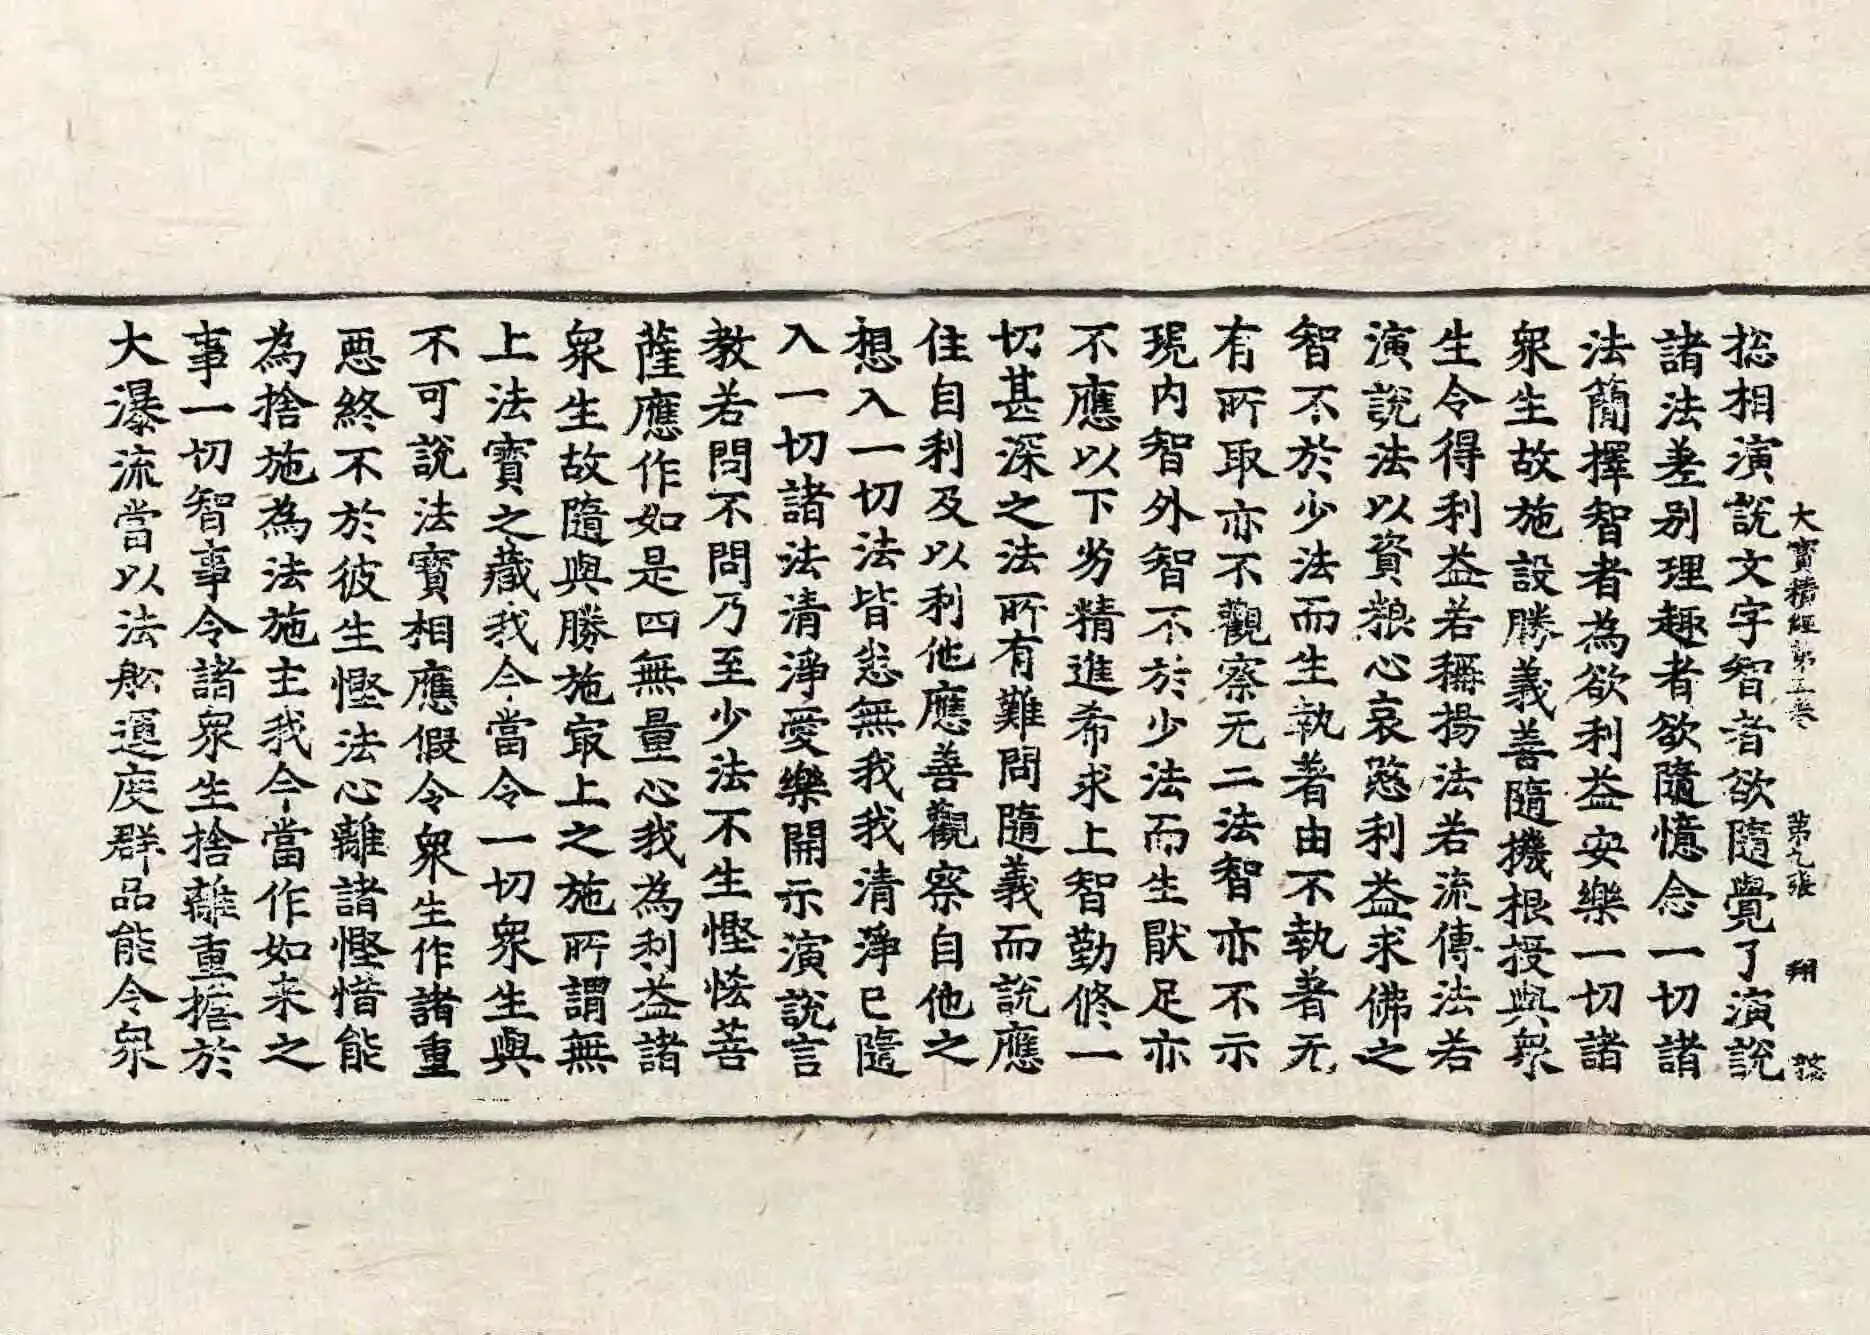 大寶積經第五卷 第九張 翔 㦿
捴相演說文字智者欲隨覺了演說
諸法差别理趣者欲隨憶念一切諸
法簡擇智者為欲利益安樂一切諸
衆生故施設勝義善隨機根授與衆
生令得利益若稱揚法若流傳法若
演說法以資粮心哀愍利益求佛之
智不於少法而生執著由不執著无
有所取亦不觀察无二法智亦不示
現内智外智不於少法而生猒足亦
不應以下劣精進希求上智勤修一
切甚深之法所有難問隨義而說應
住自利及以利他應善觀察自他之
想入一切法皆悉無我我清淨已隨
入一切諸法清淨愛樂開示演說言
教若問不問乃至少法不生慳悋菩
薩應作如是四無量心我為利益諸
衆生故隨與勝施㝡上之施所謂無
上法寶之藏我今當令一切衆生與
不可說法寶相應假令衆生作諸重
惡終不於彼生慳法心離諸慳惜能
為捨施為法施主我今當作如来之
事一切智事令諸衆生捨離重擔於
大瀑流當以法舩運度群品能令衆